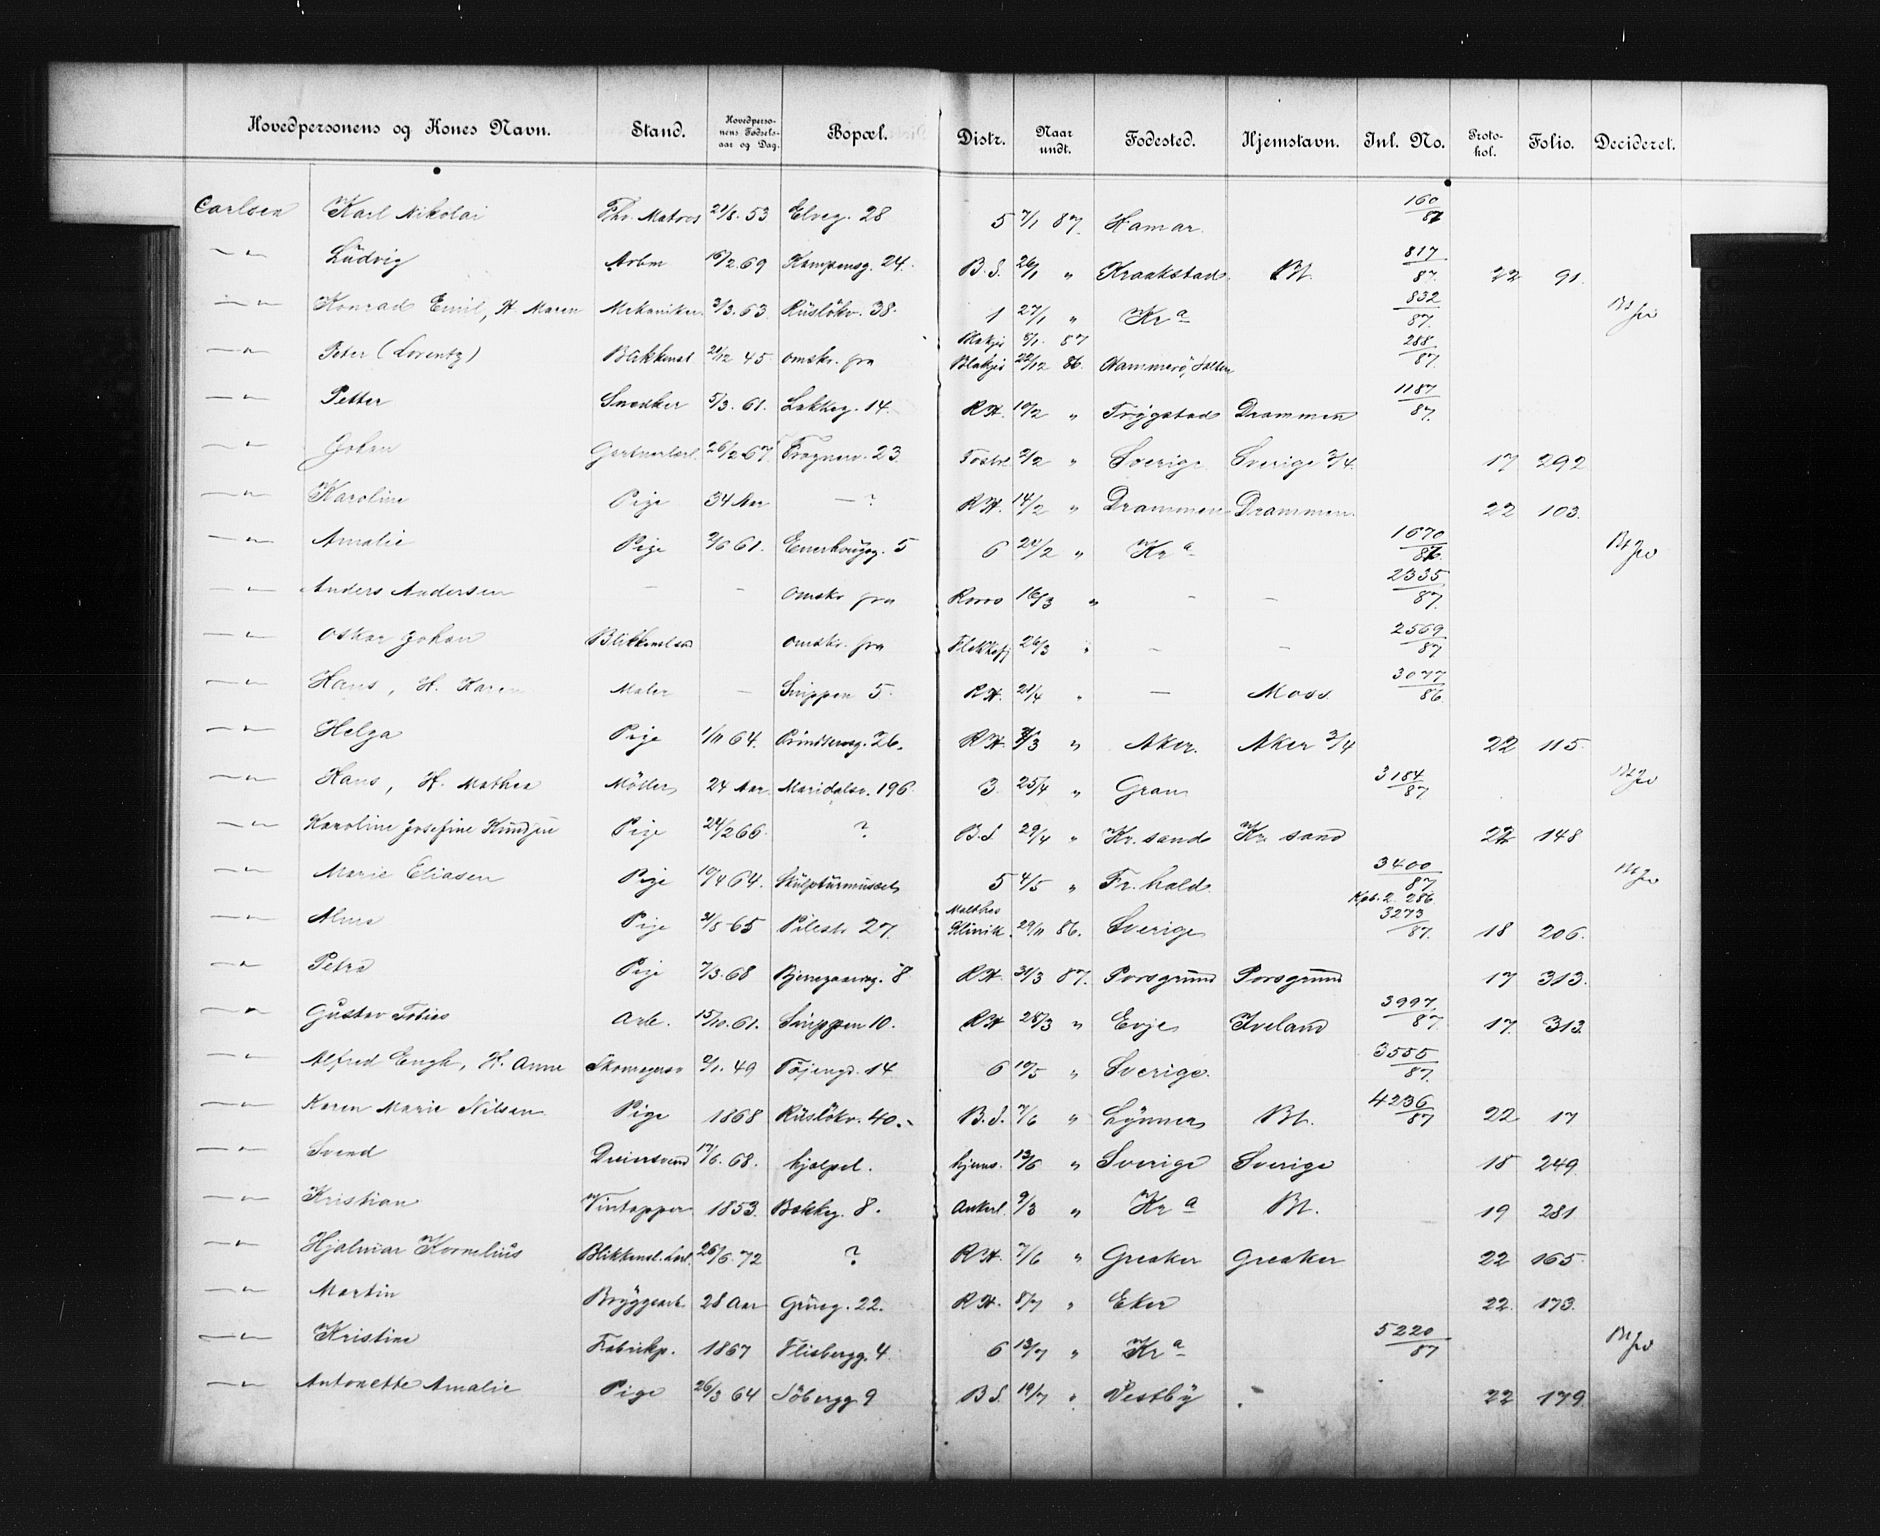 Hovedpersonens og Kones Navn. Stand. Hovedpersonens Fødselsaar og Dag. Bopæl. Distr. Naar undt. Fødested. Hjemstavn. Inl. No. Protokol. Folio. Decideret.
Carlsen Karl Nikolai Fhv. Matros 21/8. 53 Elveg. 28 5 7/1 87. Hamar. 160/87
—„— Ludvig Arbm 16/2 69 Kampensg. 24. B. S. 26/1 „ Kraakstad Bt. 817/87. 22 91.
—„— Konrad Emil, H. Maren Mekaniker 2/3. 63 Rusløkv. 38. 1 27/1 „ Kr a 832/87.
—„— Peter (Lorentz) Blikkensl. 21/12 45 omskr. fra Blakjer 22/12 86. Hammerö, Salten 288/87.
—„— Petter Snedker 5/3. 61. Lakkeg. 14. R. H. 10/2 „ Trygstad Drammen 1187/87.
—„— Johan Gartnerlærl. 26/2 67. Frognerv. 23. 2/2 „ Sverige Sverige 2/4. 17 292
—„— Karoline Pige 34 Aar — ? R. H. 14/2 „ Drammen Drammen. 22 103.
—„— Amalie Pige 2/6 61. Enerhougsg. 5 6 24/2 „ Kr a 1670/86
—„— Anders Andersen — — omskr fra Roros 16/3 „ — — 2335/87.
—„— Oskar Johan Blikkenslsv omskr. fra Flekkefj 26/3 „ — — 2569/87
—„— Hans, H. Karen Maler — Snippen 5. R. H. 21/4 „ — Moss 3077/86
—„— Helga Pige 1/11 64. Prindsensg. 26. R. H. 8/3 „ Aker. Aker 3/4 22 115.
—„— Hans, H. Mathea Møller 24 Aar. Maridalsv. 196 3. 25/4 „ Gran 3184/87.
—„— Karoline Josefine Knudsen Pige 24/2 66. ? B. S 29/4 „ Kr. sand Kr. sand 22 148
—„— Marie Eliasen Pige 10/4 64. Skulpturmuseet 5 4/5 „ Fr. hald. 3400/87
—„— Alma Pige 31/8 65 Pilestr 27. Malthes Klinik. 29/11 86. Sverige Kpt. 2 286 3273/87. 18 206.
—„— Petra Pige 7/3. 68 Bjerregaardsg. 8 R. H. 31/3 87. Porsgrund Porsgrund 17 313.
—„— Gustav Tobias Arb. 15/10. 61. Snippen 10. R. H 28/3 „ Evje Iveland 3997/87. 17. 313.
—„— Alfred Engh, H. Anne Skomagersv 2/1. 49 Töjengt. 14 6 10/5 „ Sverige. 3555/87.
—„— Karen Marie Nilsen Pige 1868 Rusløkv. 40. B. S. 7/6 „ Lynner Bt. 4236/87 22 17
—„— Svend Dreiersvend 17/6. 68. hjælpsl. hjems. 13/6 „ Sverige Sverige 18 249.
—„— Kristian Vintapper 1853. Bakkeg. 8. Ankerl. 9/3 „ Kr a Bt. 19 281
—„— Hjalmar Kornelius Blikkensl. lærl. 26/6. 72 ? R. H. 7/6 „ Greaker Greaker 22 165.
—„— Martin Bryggearb 28 Aar Grueg. 22. R. H. 8/7 „ Eker 22. 173.
—„— Kristine Fabrikp. 1867 Flisbergg. 4. 6 13/7 „ Kr a 5220/87
—„— Antonette Amalie Pige 26/3 64 Söbergg 9 B S. 19/7 „ Vestby 22 179.